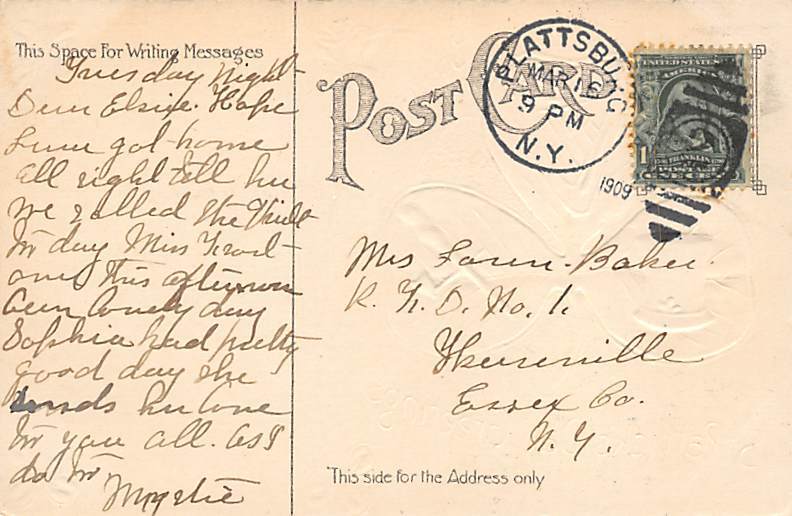 This Space For Writing Messages
Tuesday Night
Dear Elsie. Hope
got home
all right tell her
we called the
day Miss
one this afternoon
been lovely day
Sophia had pretty
good day she
sends her love
to you all. as I
do to
Myrtie
POST CARD
PLATTSBURG
MAR 16
9 PM
N.Y.
1909
UNITED STATES OF
AMERICA
1
FRANKLIN
POSTAGE
ONE CENT
Mrs Loren Baker.
R. F. D. No. 1.
Keeseville
Essex Co.
N. Y.
This side for the Address only